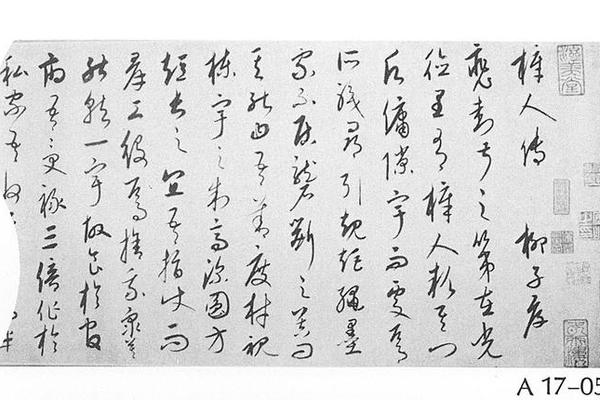 梓人傳 柳子厚
裴封叔之第在光
德里有梓人款其門
願傭隙宇而處焉
所職尋引規矩繩墨
家不居礱斲之器問
其能曰吾善度材視
棟宇之制高深圓方
短長之宜吾指使而
群工役焉捨我眾莫
能就一宇故食於官
府吾受祿三倍作於
私家吾收 半
A 17-05